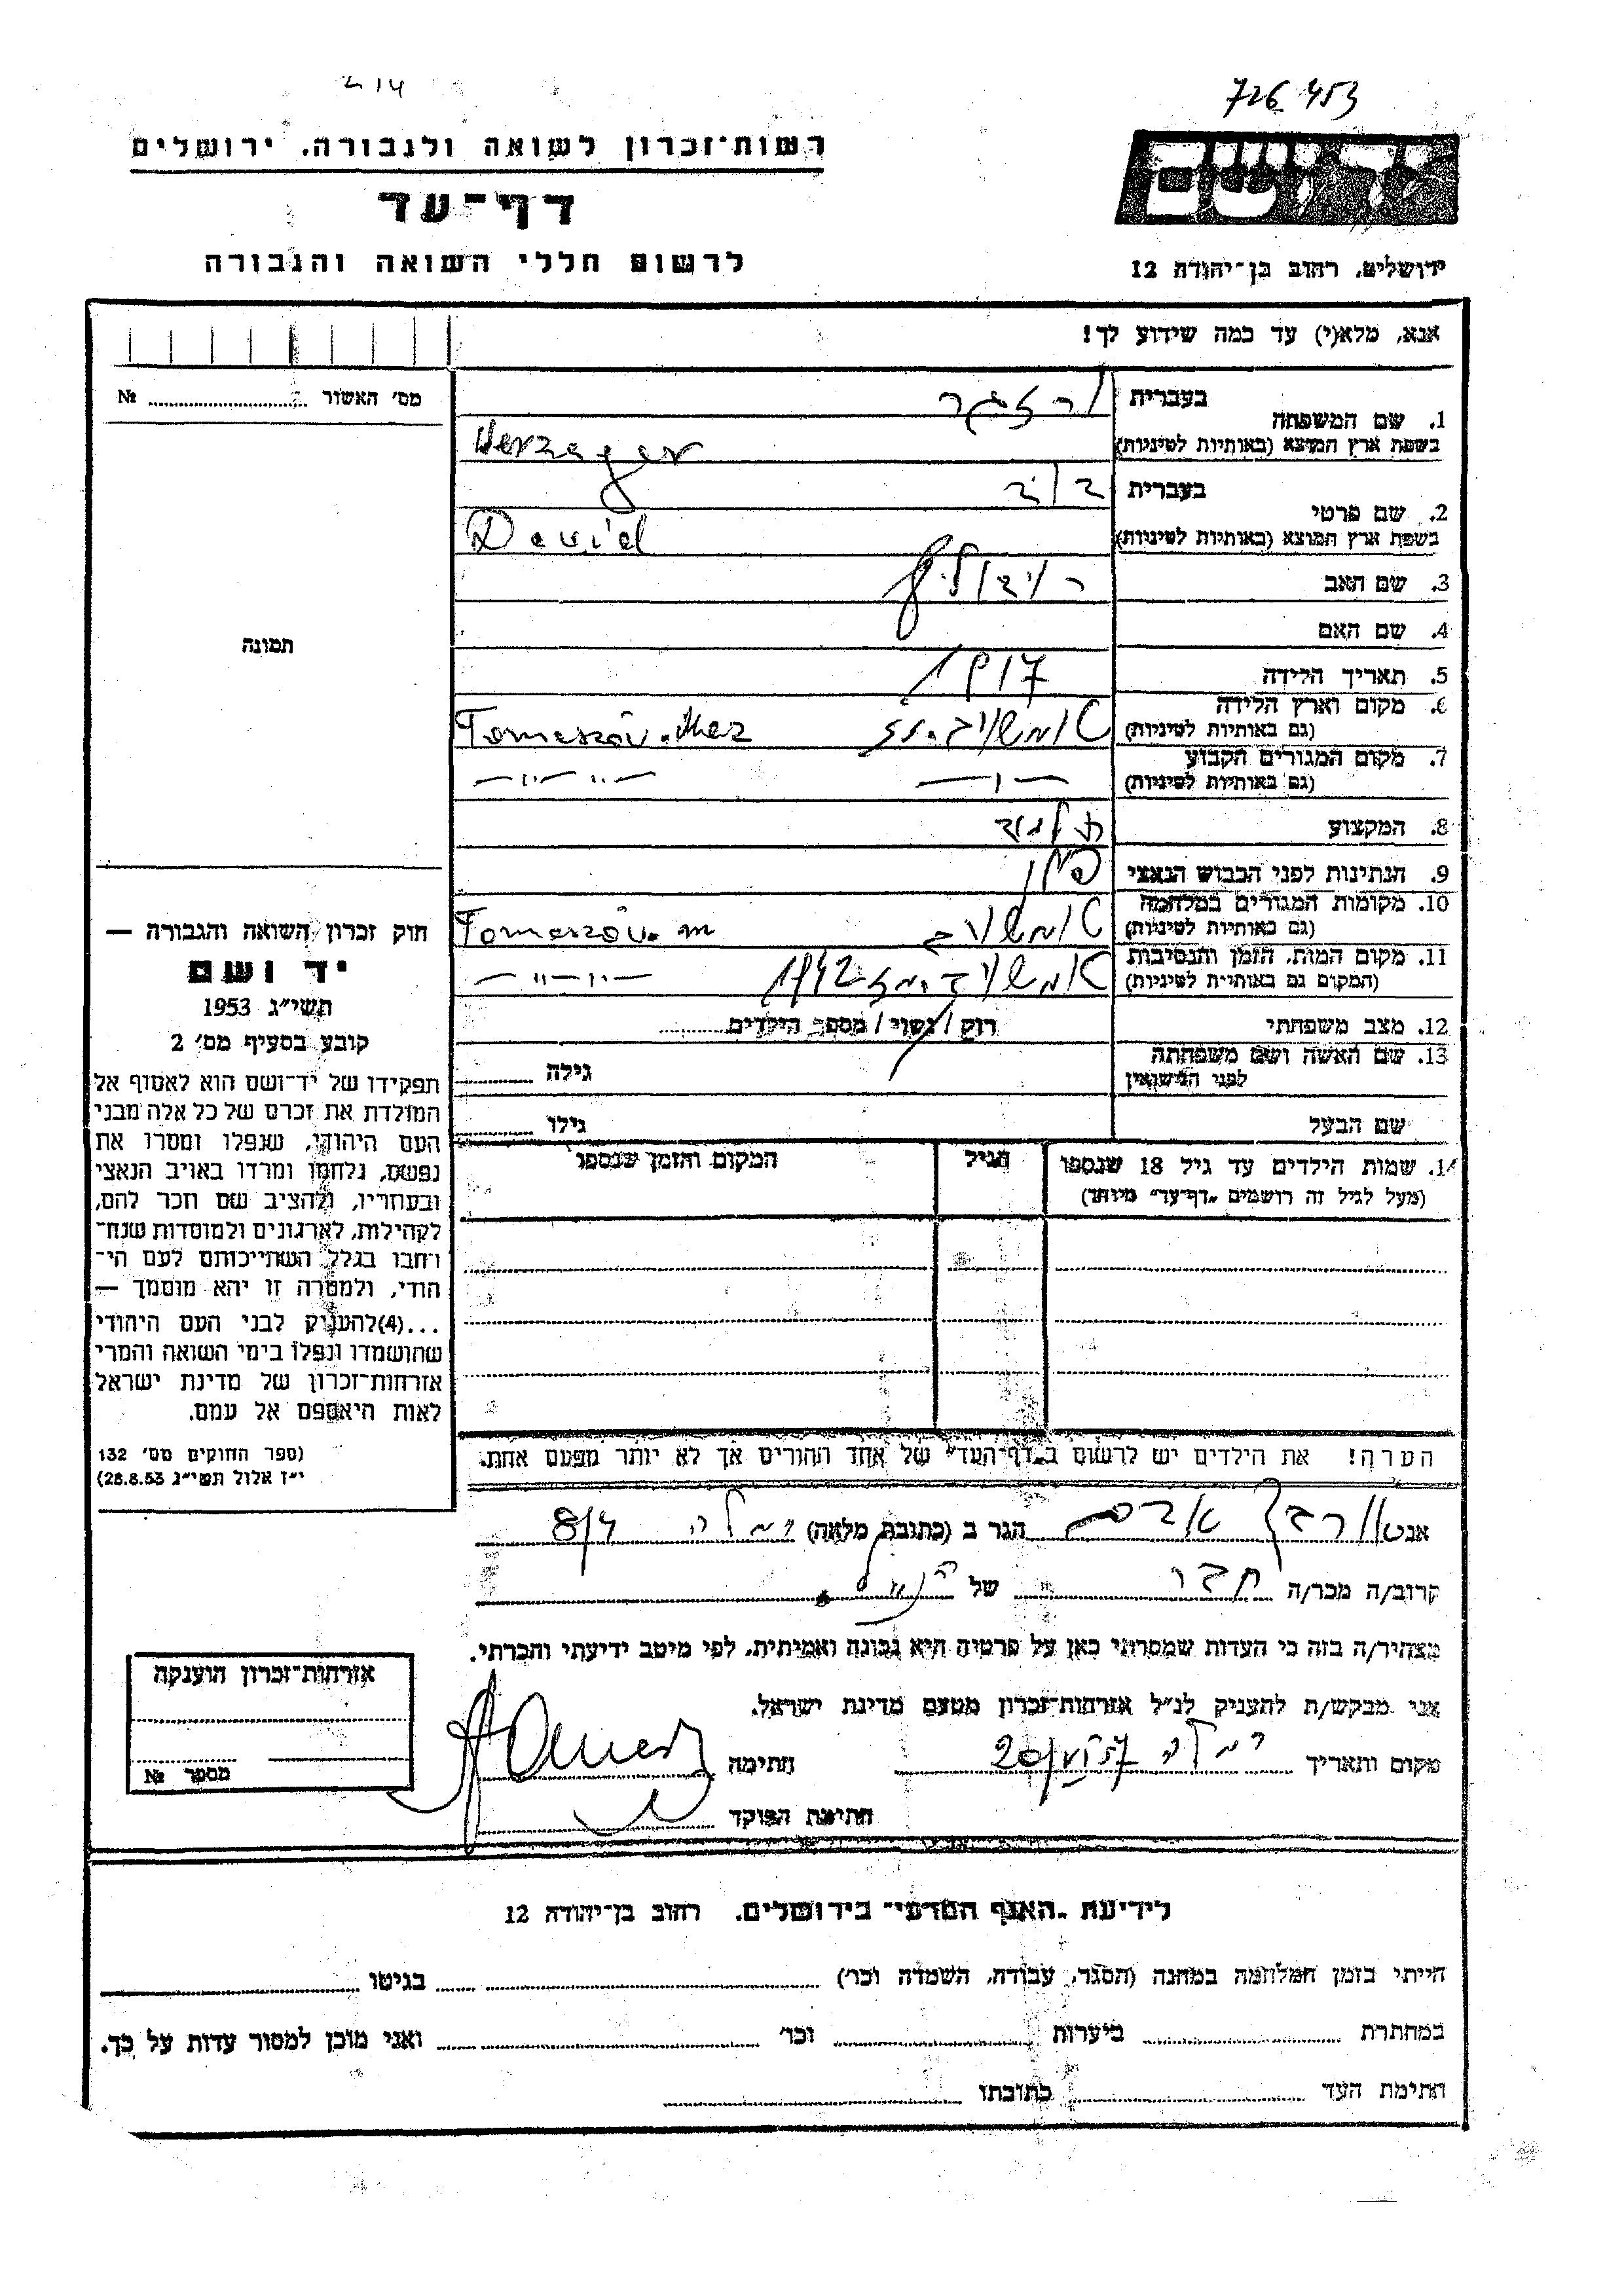 214
726453
רשות־זכרון לשואה ולגבורה. ירושלים
יד ושם
דף־עד
לרשום חללי השואה והגבורה
ירושלים, רחוב בן־יהודה 12
אנא, מלא(י) עד כמה שידוע לך!
מס׳ האשור № 
1. שם המשפחה
בעברית
בשפת ארץ המוצא (באותיות לטיניות)
Werzager
2. שם פרטי
בעברית דוד
בשפת ארץ המוצא (באותיות לטיניות)
David
3. שם האב
4. שם האם
5. תאריך הלידה 1917
6. מקום וארץ הלידה
(גם באותיות לטיניות)
Tomaszów. Maz
7. מקום המגורים הקבוע
(גם באותיות לטיניות)
— " — " —
8. המקצוע
9. הנתינות לפני הכבוש הנאצי פולין
10. מקומות המגורים במלחמה
(גם באותיות לטיניות)
טומשוב Tomaszów. m
11. מקום המות, הזמן והנסיבות
(המקום גם באותיות לטיניות)
1942 — " — " —
12. מצב משפחתי רוק / נשוי / מספר הילדים
13. שם האשה ושם משפחתה
לפני הנישואין
גילה
שם הבעל גילו
14. שמות הילדים עד גיל 18 שנספו
(מעל לגיל זה רושמים „דף־עד״ מיוחד)
הגיל
המקום והזמן שנספו
הערה! את הילדים יש לרשום ב„דף־העד״ של אחד ההורים אך לא יותר מפעם אחת.
תמונה
חוק זכרון השואה והגבורה —
יד ושם
תשי״ג 1953
קובע בסעיף מס׳ 2
תפקידו של יד־ושם הוא לאסוף אל
המולדת את זכרם של כל אלה מבני
העם היהודי, שנפלו ומסרו את
נפשם, נלחמו ומרדו באויב הנאצי
ובעוזריו, ולהציב שם וזכר להם,
לקהילות, לארגונים ולמוסדות שנח־
רבו בגלל השתייכותם לעם הי־
הודי, ולמטרה זו יהא מוסמך —
...(4)להעניק לבני העם היהודי
שהושמדו ונפלו בימי השואה והמרי
אזרחות־זכרון של מדינת ישראל
לאות היאספם אל עמם.
(ספר החוקים מס׳ 132
י״ז אלול תשי״ג 28.8.53)
אני
הגר ב (כתובת מלאה) רמלה
קרוב/ה מכר/ה חבר של הנ״ל
מצהיר/ה בזה כי העדות שמסרתי כאן על פרטיה היא נכונה ואמיתית, לפי מיטב ידיעתי והכרתי.
אני מבקש/ת להעניק לנ״ל אזרחות־זכרון מטעם מדינת ישראל.
מקום ותאריך רמלה חתימה
חתימת הפוקד
אזרחות־זכרון הוענקה
מספר №
לידיעת „האגף המדעי״ בירושלים. רחוב בן־יהודה 12
הייתי בזמן המלחמה במחנה (הסגר, עבודה, השמדה וכו׳) בגיטו
במחתרת ביערות וכו׳ ואני מוכן למסור עדות על כך.
חתימת העד כתובתו